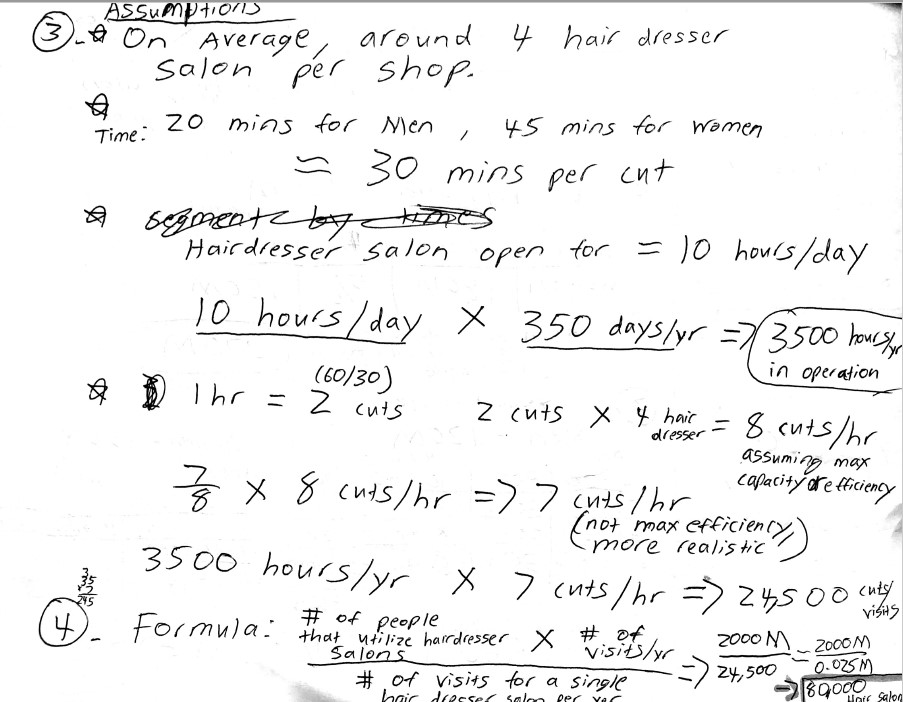 Assumptions
③ - ☆ On Average, around 4 hair dresser
salon per shop.
☆ Time: 20 mins for Men , 45 mins for women
≈ 30 mins per cut
☆ segment by times
Hairdresser salon open for = 10 hours/day
10 hours/day × 350 days/yr => 3500 hours/yr
in operation
☆ 1 hr = 2 cuts (60/30) 2 cuts × 4 hair dresser = 8 cuts/hr
assuming max
capacity or efficiency
7/8 × 8 cuts/hr => 7 cuts/hr
(not max efficiency,
more realistic)
3500 hours/yr × 7 cuts/hr => 24,500 cuts/visits
3
35
x 7
245
④ - Formula: # of people that utilize hairdresser salons × # of visits/yr
# of visits for a single
hair dresser salon per year
=> 2000M / 24,500 = 2000M / 0.025M
=> 80,000 Hair salon